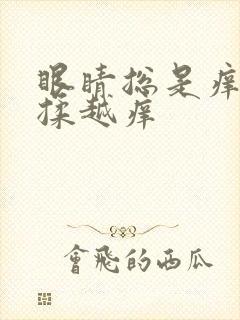 眼睛总是痒
揉越痒
會飛的西瓜